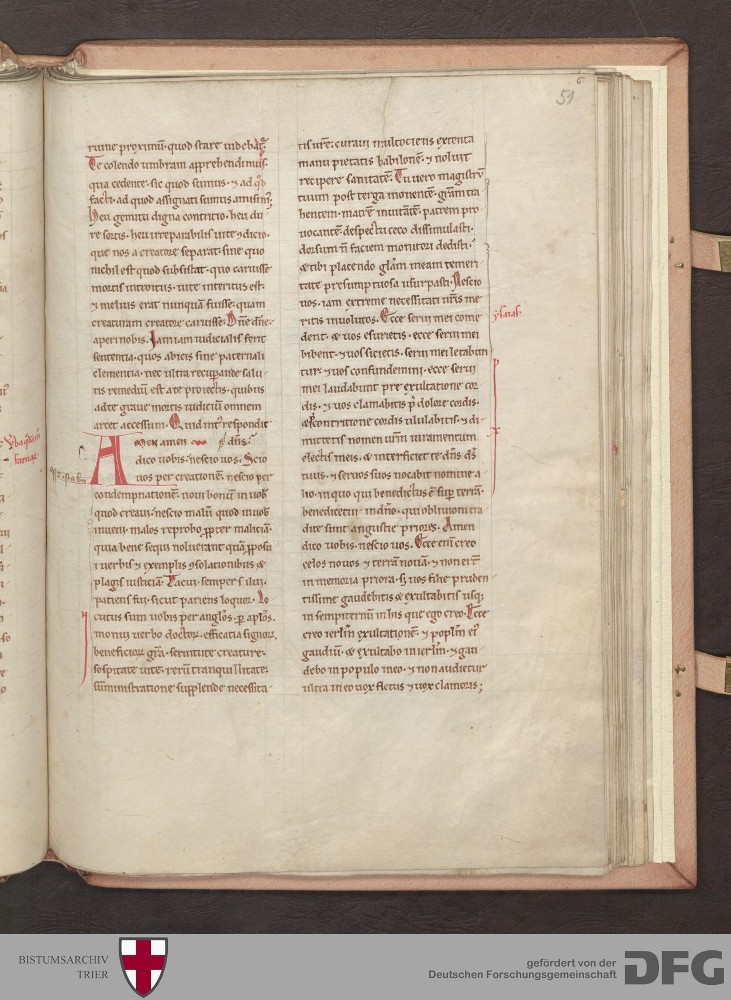 51
ruine proximū· quod stare uidebat᷑·
Te colendo umbram apprehendimus·
qua cedente· sic quod sumus· ⁊ ad qd
facti· ad quod assignati sumus amisim᷒·
Heu gemitu digna contritio· heu du
re sortis· heu irreparabilis uite ꝯdicio·
que nos a creatore separat· sine quo
nichil est quod subsistat· quo caruisse
mortis introitus· uite interitus est·
⁊ melius erat nunquā fuisse· quam
creaturam creatore caruisse· Dn̄e dn̄e·
aperi nobis· Iam iam iudicialis ferit
sententia· quos abicis sine paternali
clementia· nec ultra recuperande salu
tis remediū est a te proiectis· quibus
ad te graue mortis iudiciū omnem
artet accessum· Quid int᷑ respondit
AMEN amen dn̄s·
dico uobis· nescio uos· Scio
uos per creationē· nescio per
condempnationē· noui bonū in uob᷒
quod creaui· nescio malū quod in uob᷒
inueni· malos reprobo ꝓpter maliciā·
quia bene sequi noluerant quā ꝓposu
i uerbis ⁊ exemplis ꝯsolationibus ⁊
plagis iusticiā· Tacui semper silui·
patiens fui· sicut pariens loquor· Lo
cutus sum uobis per angl̄os· ꝑ apl̄os·
monui uerbo doctoꝝ· efficatia signoꝝ·
beneficioꝝ gr̄a· seruitute creature·
sospitate uite· rerū tranquillitate·
sūministratione supplende necessita
tis ur̄e· curaui multociens extenta
manu pietatis babilonē· ⁊ noluit
recipere sanitatē· Tu uero magistrū
tuum post terga monentē· gr̄am tra
hentem· matrē inuitātē· patrem pro
uocantē despectu ceco dissimulasti·
dorsum ⁊ n̄ faciem monitori dedisti·
⁊ tibi placendo gl̄am meam temeri
tate presumptuosa usurpasti· Nescio
uos· iam extreme necessitati ur̄is me
ritis inuolutos· Ecce serui mei come
dent· ⁊ uos esurietis· ecce serui mei
bibent· ⁊ uos sicietis· serui mei letabun
tur ⁊ uos confundemini· ecce serui
mei laudabunt pre exultatione cor
dis· ⁊ uos clamabitis p̄ dolore cordis·
⁊ contritione cordis ululabitis· ⁊ di
mittetis nomen ur̄m iuramentum
electis meis· ⁊ interficiet te dn̄s ds̄
tuus· ⁊ seruos suos uocabit nomine a
lio· in quo qui benedictus ē sup̄ terrā·
benedicetur in dn̄o· qui obliuioni tra
dite sunt angustie priores· Amen
dico uobis· nescio uos· Ecce eni᷒ creo
celos nouos ⁊ terrā nouā· ⁊ non er̄t
in memoria priora· s; uos filie pruden
tissime gaudebitis ⁊ exultabitis usq;
in sempiternū in his que ego creo· Ecce
creo ierl̄m exultationē· ⁊ popl̄m ei᷒
gaudiū· ⁊ exultabo in ierl̄m· ⁊ gau
debo in populo meo· ⁊ non audietur
ultra in eo uox fletus ⁊ uox clamoris;
ysaias·
BISTUMSARCHIV
TRIER
gefördert von der
Deutschen Forschungsgemeinschaft
DFG